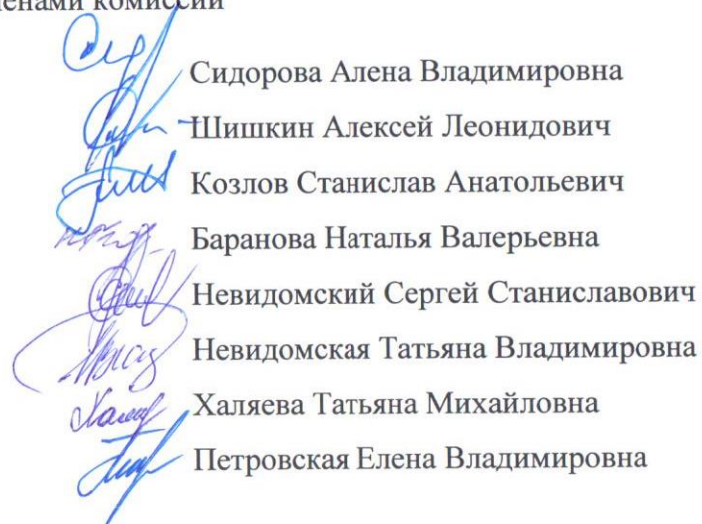 членами комиссии
Сидорова Алена Владимировна
Шишкин Алексей Леонидович
Козлов Станислав Анатольевич
Баранова Наталья Валерьевна
Невидомский Сергей Станиславович
Невидомская Татьяна Владимировна
Халяева Татьяна Михайловна
Петровская Елена Владимировна